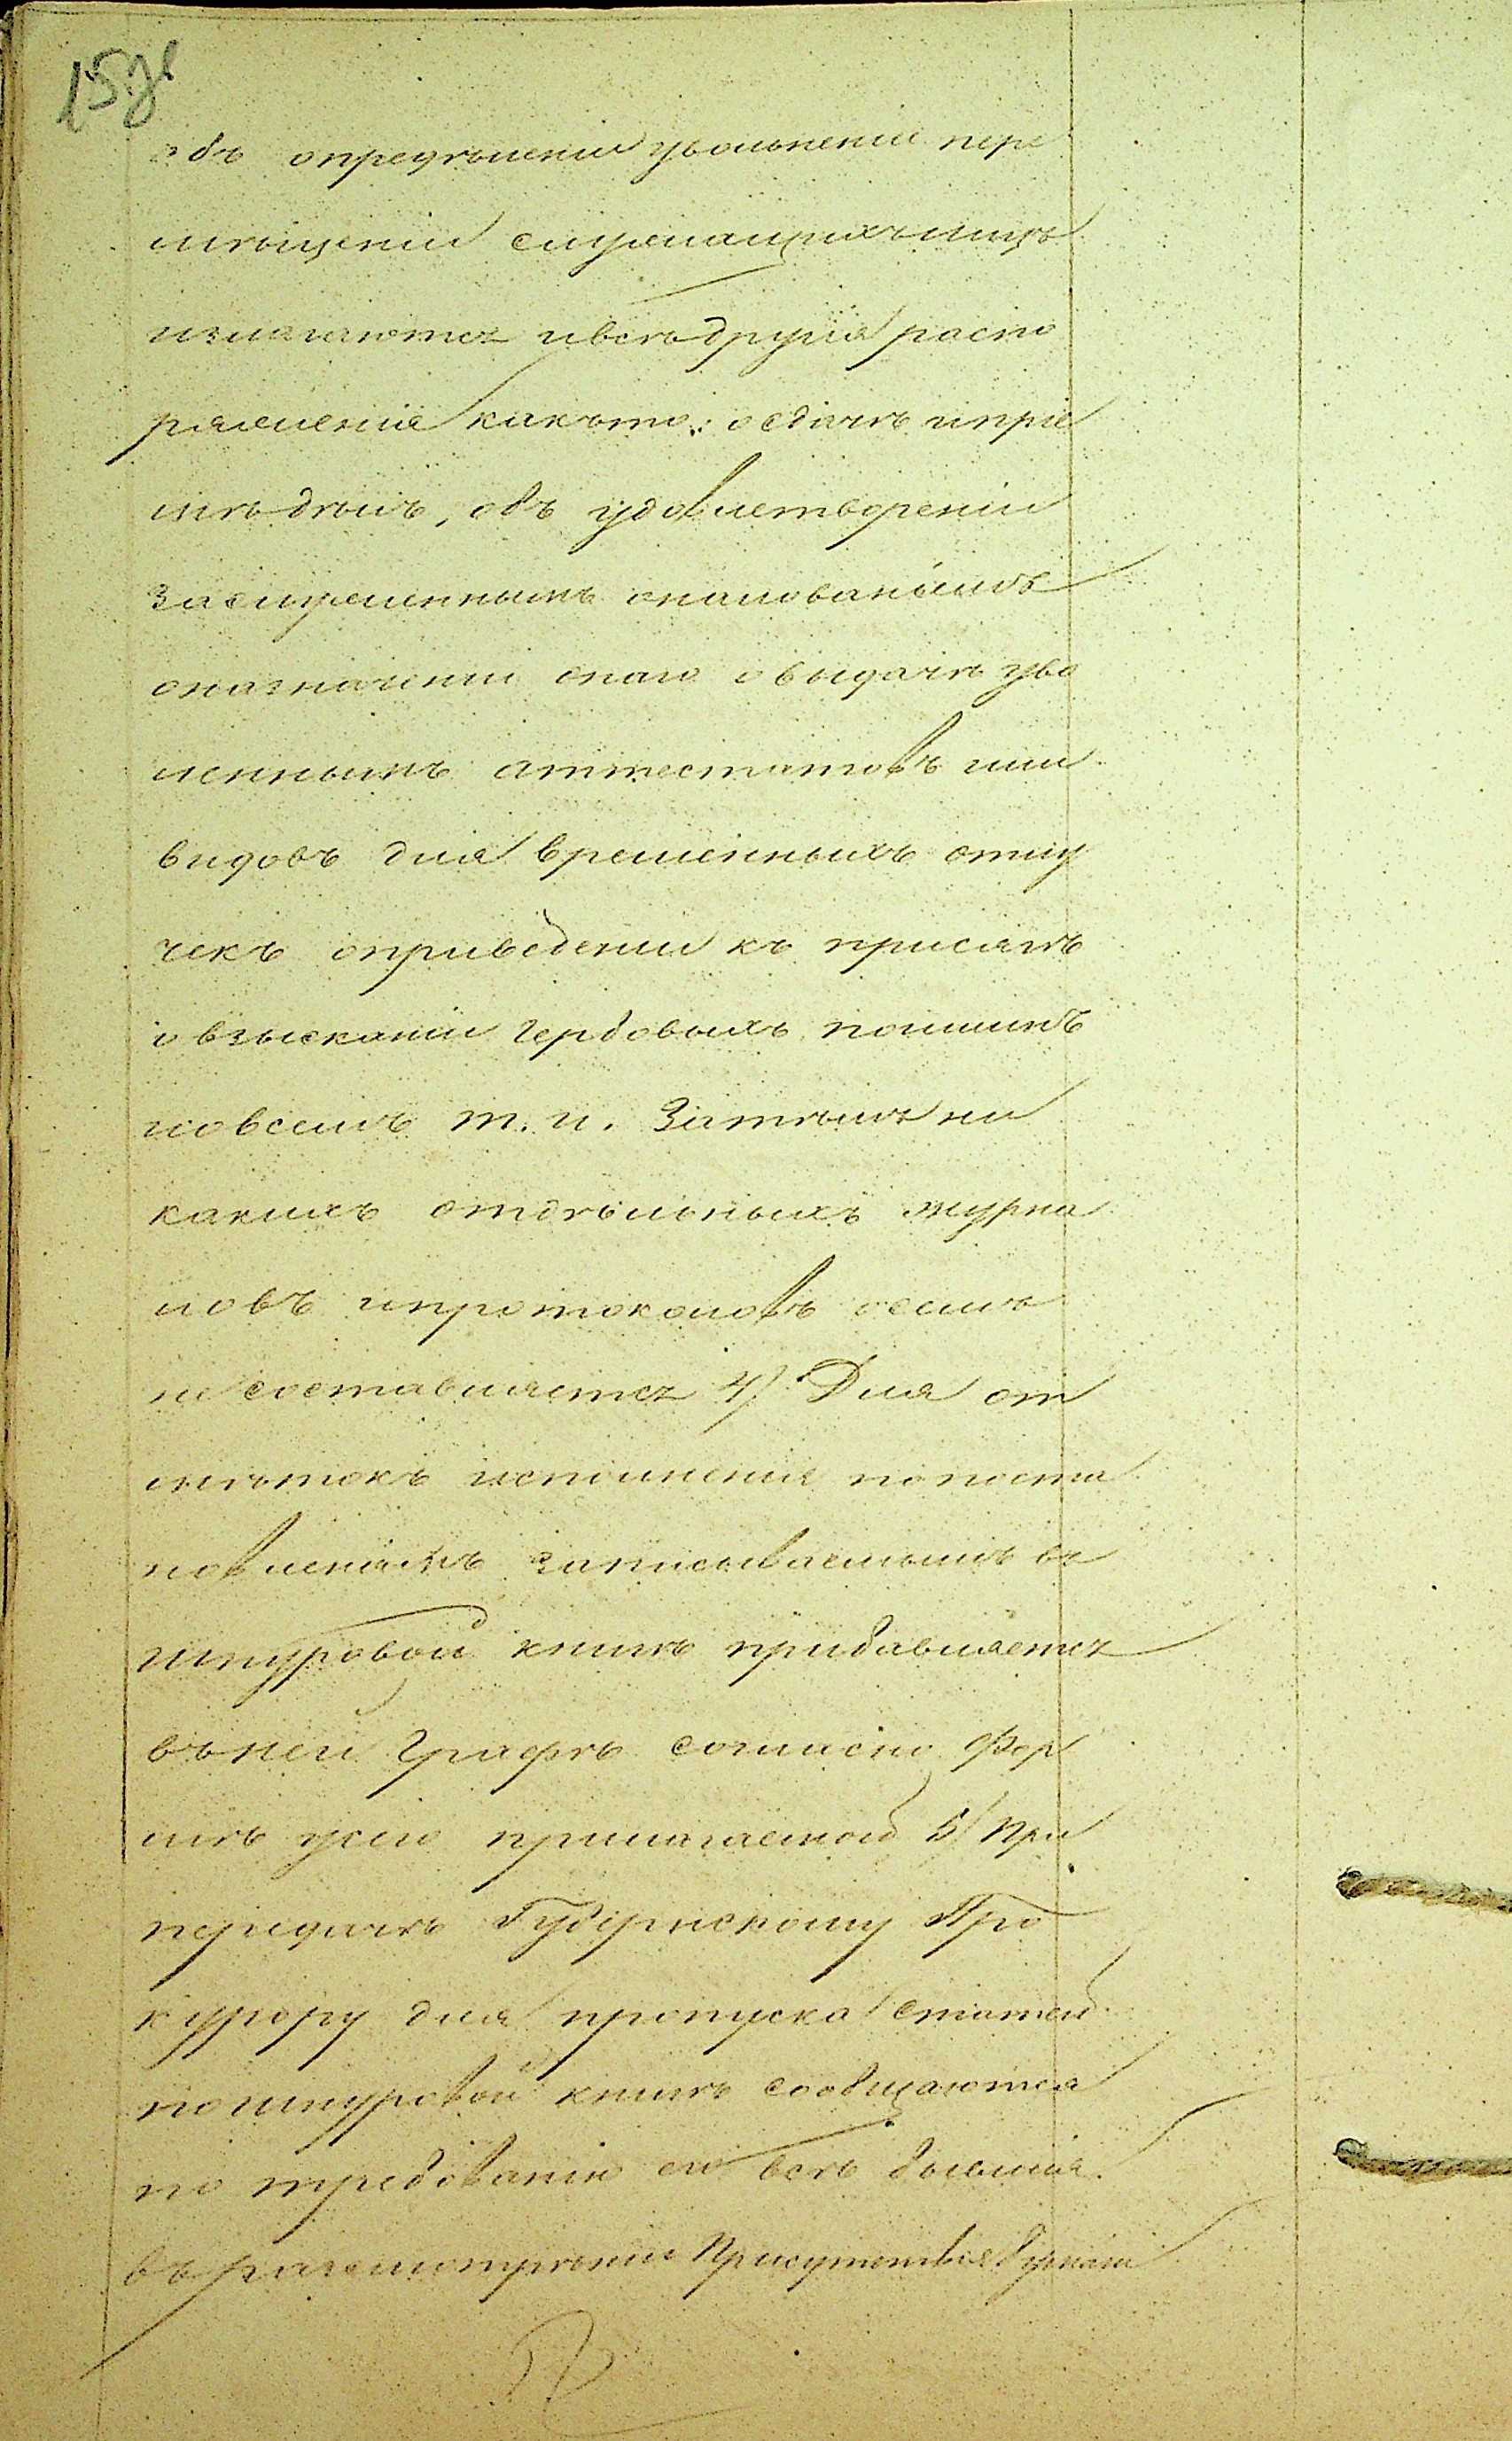 15 об
объ опредѣленіи увольненіи пере
мѣщеніи служащихъ лицъ
излагаются и всѣ другія распо
ряженія какъ то: о сдачѣ и пріе
мѣ дѣлъ, объ удовлетвореніи
заслуженнымъ жалованьемъ
о назначеніи онаго о выдачѣ уво
леннымъ аттестатовъ или
видовъ для временныхъ отлу
чекъ о приведеніи къ присягѣ
о взысканіи гербовыхъ пошлинъ
и о всемъ т. п. Затѣмъ ни
какихъ отдѣльныхъ журна
ловъ и протоколовъ о семъ
не составляется 4) Для от
мѣтокъ исполненія по поста
новленіямъ записываемымъ въ
шнуровой книгѣ прибавляется
въ ней графѣ согласно фор
мѣ у сего прилагаемой 5) При
передачѣ Губернскому Про
курору для пропуска статей
по шнуровой книгѣ сообщаются
по требованію его всѣ бывшія
въ разсмотрѣніи Присутствія бумаги